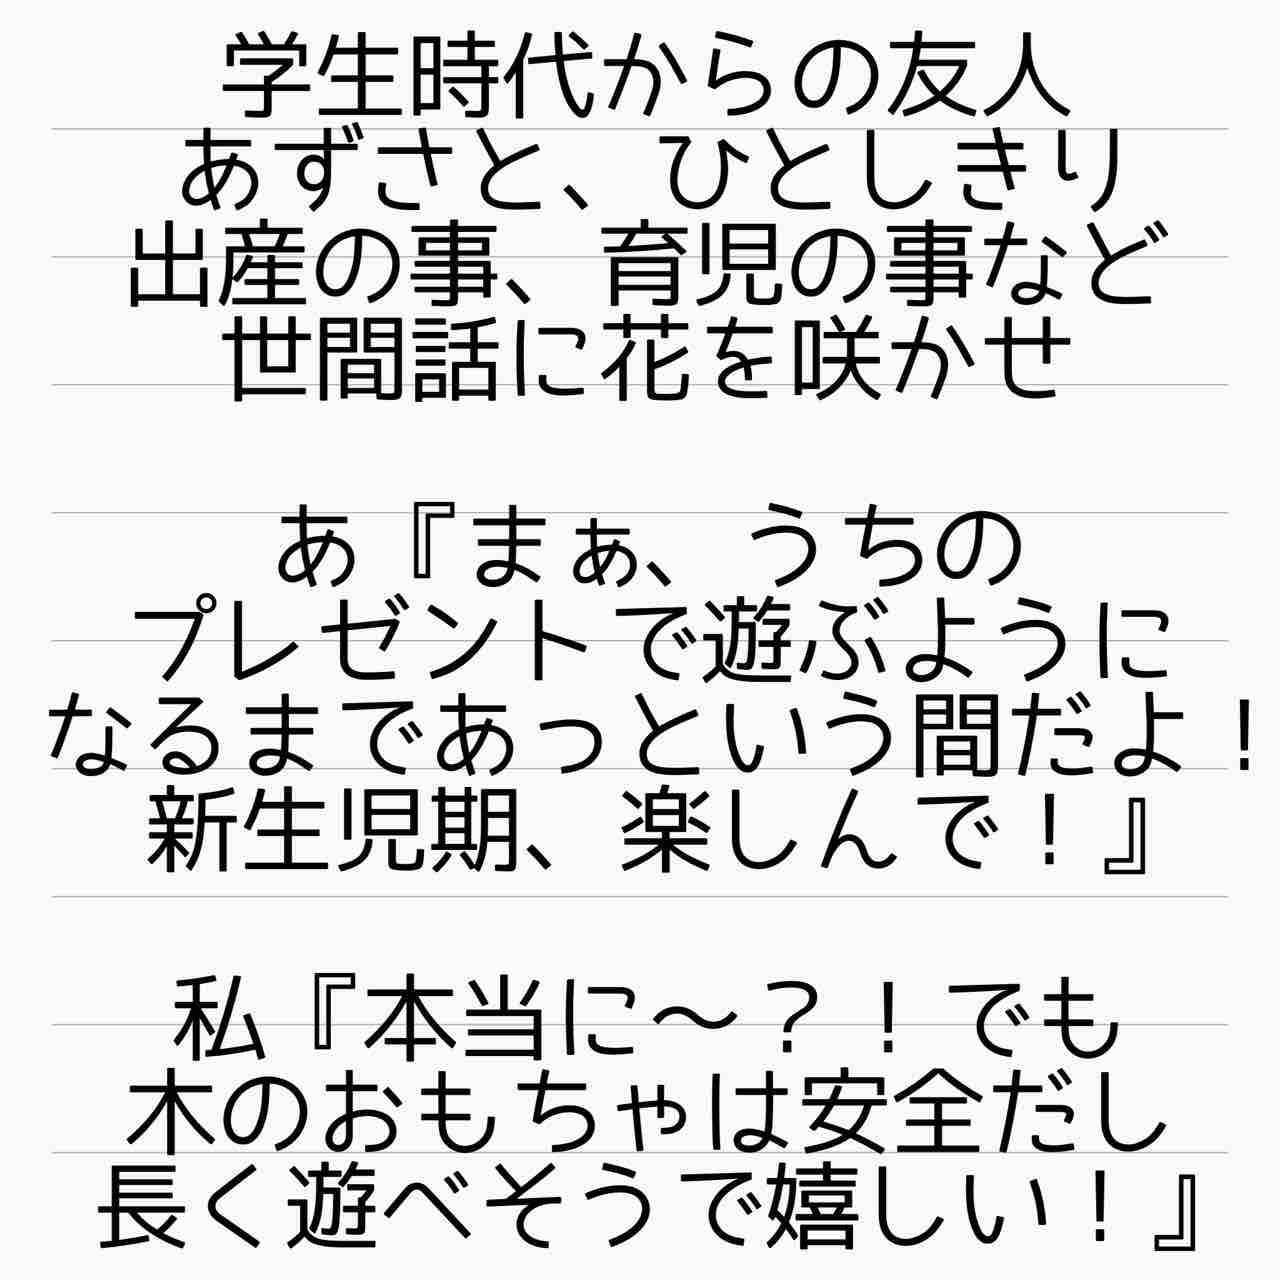 学生時代からの友人
あずさと、ひとしきり
出産の事、育児の事など
世間話に花を咲かせ
あ『まぁ、うちの
プレゼントで遊ぶように
なるまであっという間だよ！
新生児期、楽しんで！』
私『本当に〜？！でも
木のおもちゃは安全だし
長く遊べそうで嬉しい！』